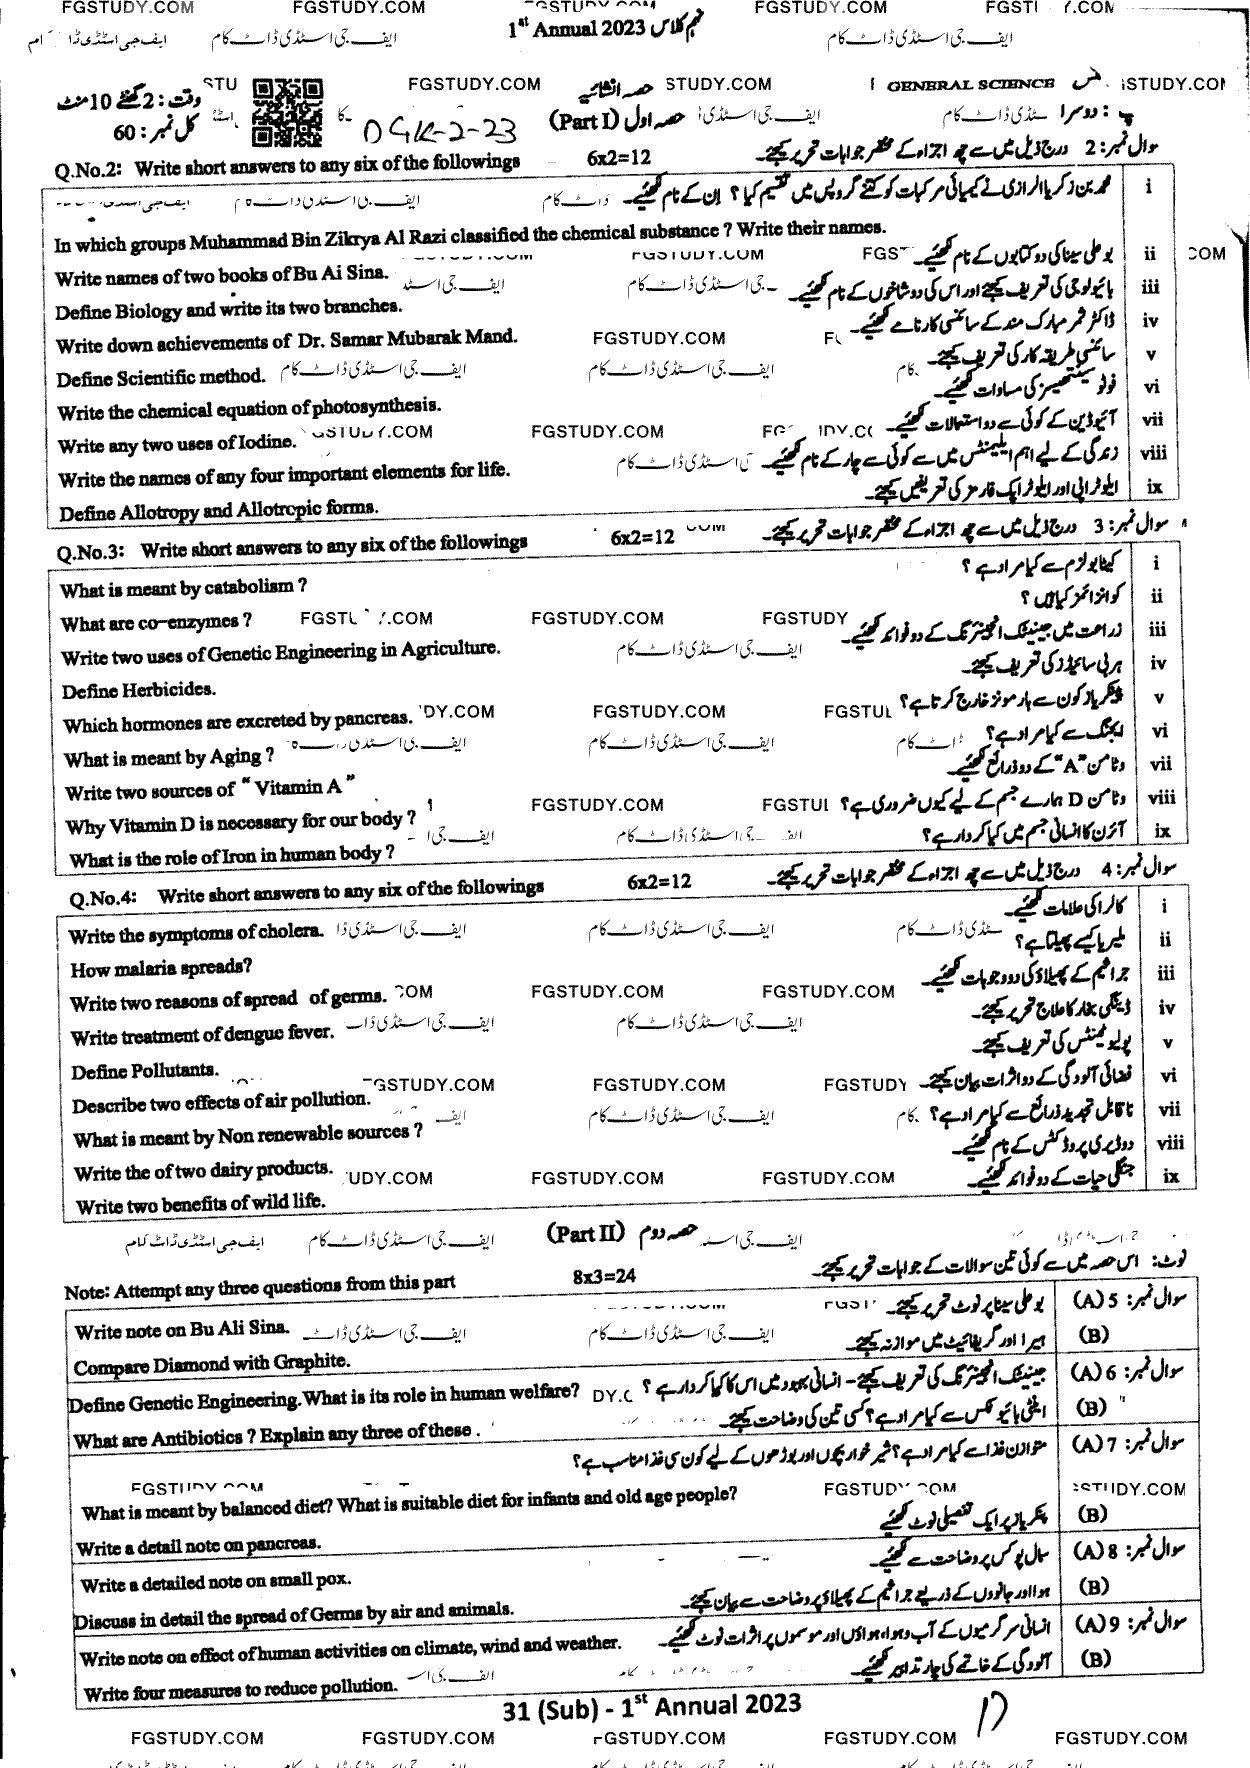 FGSTUDY.COM FGSTUDY.COM FGSTUDY.COM FGSTUDY.COM
1st Annual 2023 نہم کلاس
ایف جی اسٹڈی ڈاٹ کام ایف جی اسٹڈی ڈاٹ کام
FGSTUDY.COM STUDY.COM GENERAL SCIENCE STUDY.COM
وقت: 2 گھنٹے 10 منٹ حصہ انشائیہ
کل نمبر: 60 DGK-2-23 (Part I) حصہ اول ایف جی اسٹڈی ڈاٹ کام
Q.No.2: Write short answers to any six of the followings 6x2=12 سوال نمبر: 2 درج ذیل میں سے چھ اجزاء کے مختصر جوابات تحریر کیجئے۔
i محمد بن زکریا الرازی نے کیمیائی مرکبات کو کتنے گروپس میں تقسیم کیا؟ ان کے نام لکھئیے۔
In which groups Muhammad Bin Zikrya Al Razi classified the chemical substance ? Write their names.
ii بو علی سینا کی دو کتابوں کے نام لکھئیے۔
Write names of two books of Bu Ai Sina.
iii بائیولوجی کی تعریف کیجئے اور اس کی دو شاخوں کے نام لکھئیے۔
Define Biology and write its two branches.
iv ڈاکٹر ثمر مبارک مند کے سائنسی کارنامے لکھئیے۔
Write down achievements of Dr. Samar Mubarak Mand. FGSTUDY.COM
v سائنسی طریقہ کار کی تعریف کیجئے۔
Define Scientific method.
vi فوٹو سینتھیسز کی مساوات لکھئیے۔
Write the chemical equation of photosynthesis.
vii آئیوڈین کے کوئی سے دو استعمالات لکھئیے۔
Write any two uses of Iodine. FGSTUDY.COM
viii زندگی کے لیے اہم ایلیمنٹس میں سے کوئی سے چار کے نام لکھئیے۔
Write the names of any four important elements for life.
ix ایلوٹراپی اور ایلوٹراپک فارمز کی تعریفیں کیجئے۔
Define Allotropy and Allotropic forms.
Q.No.3: Write short answers to any six of the followings 6x2=12 سوال نمبر: 3 درج ذیل میں سے چھ اجزاء کے مختصر جوابات تحریر کیجئے۔
i کیٹابولزم سے کیا مراد ہے؟
What is meant by catabolism ?
ii کو انزائمز کیا ہیں؟
What are co-enzymes ? FGSTUDY.COM FGSTUDY
iii زراعت میں جینیٹک انجینئرنگ کے دو فوائد لکھئیے۔
Write two uses of Genetic Engineering in Agriculture.
iv ہربی سائیڈز کی تعریف کیجئے۔
Define Herbicides.
v پنکریاز کون سے ہارمونز خارج کرتا ہے؟
Which hormones are excreted by pancreas. FGSTUDY.COM
vi ایجنگ سے کیا مراد ہے؟
What is meant by Aging ?
vii وٹامن "A" کے دو ذرائع لکھئیے۔
Write two sources of "Vitamin A"
viii وٹامن D ہمارے جسم کے لیے کیوں ضروری ہے؟
Why Vitamin D is necessary for our body ? FGSTUDY.COM
ix آئرن کا انسانی جسم میں کیا کردار ہے؟
What is the role of Iron in human body ?
Q.No.4: Write short answers to any six of the followings 6x2=12 سوال نمبر: 4 درج ذیل میں سے چھ اجزاء کے مختصر جوابات تحریر کیجئے۔
i کالرا کی علامات لکھئیے۔
Write the symptoms of cholera.
ii ملیریا کیسے پھیلتا ہے؟
How malaria spreads?
iii جراثیم کے پھیلاؤ کی دو وجوہات لکھئیے۔
Write two reasons of spread of germs. FGSTUDY.COM FGSTUDY.COM
iv ڈینگی بخار کا علاج تحریر کیجئے۔
Write treatment of dengue fever.
v پولیوٹینٹس کی تعریف کیجئے۔
Define Pollutants.
vi فضائی آلودگی کے دو اثرات بیان کیجئے۔
Describe two effects of air pollution. FGSTUDY.COM FGSTUDY.COM FGSTUDY
vii ناقابل تجدید ذرائع سے کیا مراد ہے؟
What is meant by Non renewable sources ?
viii دو ڈیری پروڈکٹس کے نام لکھئیے۔
Write the of two dairy products. FGSTUDY.COM FGSTUDY.COM
ix جنگلی حیات کے دو فوائد لکھئیے۔
Write two benefits of wild life.
(Part II) حصہ دوم
Note: Attempt any three questions from this part 8x3=24 نوٹ: اس حصہ میں سے کوئی تین سوالات کے جوابات تحریر کیجئے۔
سوال نمبر: 5 (A) بو علی سینا پر نوٹ تحریر کیجئے۔
Write note on Bu Ali Sina.
(B) ہیرا اور گریفائیٹ میں موازنہ کیجئے۔
Compare Diamond with Graphite.
سوال نمبر: 6 (A) جینیٹک انجینئرنگ کی تعریف کیجئے۔ انسانی بہبود میں اس کا کیا کردار ہے؟
Define Genetic Engineering.What is its role in human welfare?
(B) اینٹی بائیوٹکس سے کیا مراد ہے؟ کسی تین کی وضاحت کیجئے۔
What are Antibiotics ? Explain any three of these .
سوال نمبر: 7 (A) متوازن غذا سے کیا مراد ہے؟ شیر خوار بچوں اور بوڑھوں کے لیے کون سی غذا مناسب ہے؟
What is meant by balanced diet? What is suitable diet for infants and old age people?
(B) پنکریاز پر ایک تفصیلی نوٹ لکھئیے۔
Write a detail note on pancreas.
سوال نمبر: 8 (A) سمال پوکس پر وضاحت سے لکھئیے۔
Write a detailed note on small pox.
(B) ہوا اور جانوروں کے ذریعے جراثیم کے پھیلاؤ پر وضاحت سے بیان کیجئے۔
Discuss in detail the spread of Germs by air and animals.
سوال نمبر: 9 (A) انسانی سرگرمیوں کے آب و ہوا، ہواؤں اور موسموں پر اثرات نوٹ لکھئیے۔
Write note on effect of human activities on climate, wind and weather.
(B) آلودگی کے خاتمے کی چار تدابیر لکھئیے۔
Write four measures to reduce pollution.
31 (Sub) - 1st Annual 2023
FGSTUDY.COM FGSTUDY.COM FGSTUDY.COM FGSTUDY.COM FGSTUDY.COM